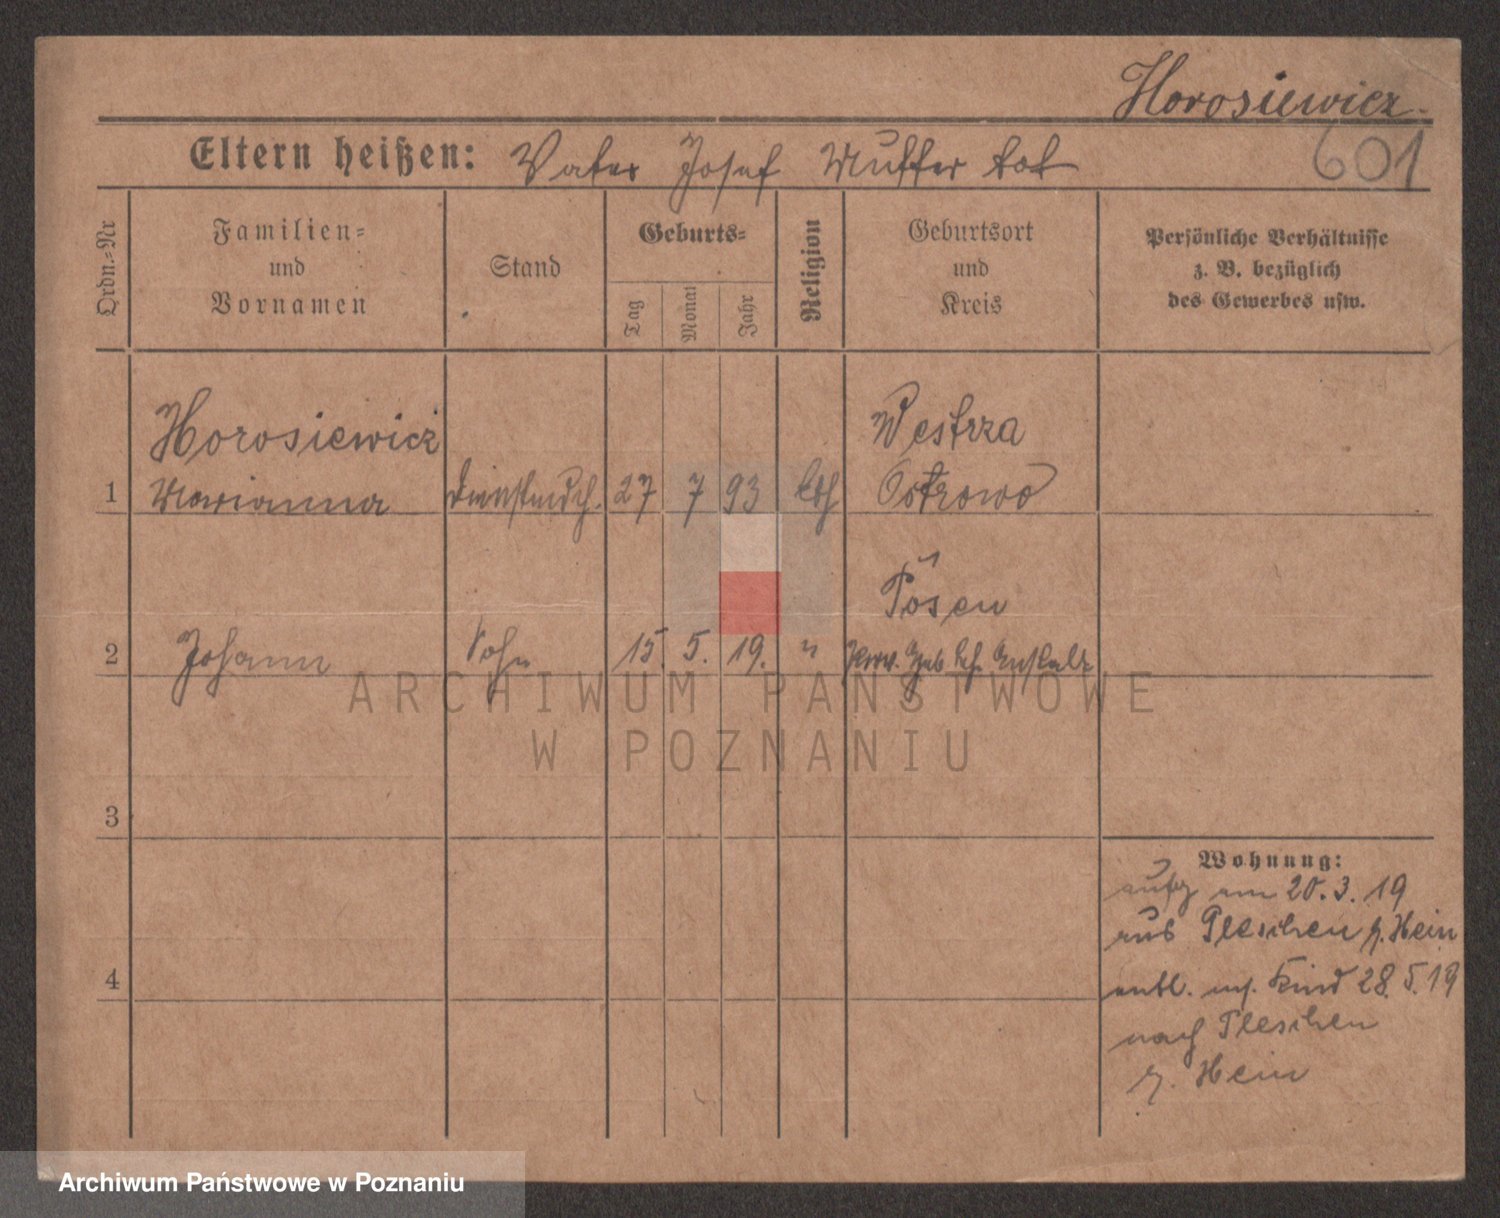 Horosiewicz.
601
Eltern heißen: Vater Josef Mutter tot
Ordn.-Nr
Familien-
und
Vornamen
Stand
Geburts-
Tag
Monat
Jahr
Religion
Geburtsort
und
Kreis
Persönliche Verhältnisse
z. B. bezüglich
des Gewerbes usw.
Horosiewicz Westrza
1 Marianna Dienstmdch. 27 7 93 kth Ostrowo
Posen
2 Johann Sohn 15. 5. 19. " Prov. Heb. Anstalt
3
4
Wohnung:
am 20.3.19
aus Pleschen z. Hein
entl. m. Kind 28.5.19
nach Pleschen
z. Hein
ARCHIWUM PAŃSTWOWE
W POZNANIU
Archiwum Państwowe w Poznaniu